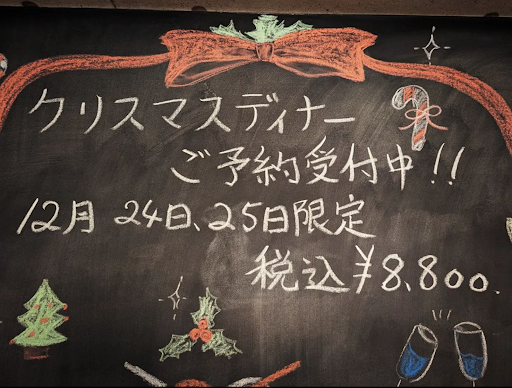 クリスマスディナー
ご予約受付中!!
12月 24日、25日限定
税込¥8,800.